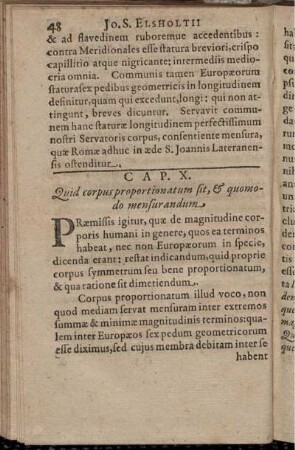 48 Jo. S. Elsholtii
& ad flavedinem ruboremue accedentibus:
contra Meridionales esse statura breviori, crispo
capillitio atque nigricante; intermediis medio-
cria omnia. Communis tamen Europæorum
statura sex pedibus geometricis in longitudinem
definitur, quam qui excedunt, longi: qui non at-
tingunt, breves dicuntur. Servavit commu-
nem hanc staturæ longitudinem perfectissimum
nostri Servatoris corpus, consentiente mensura,
quæ Romæ adhuc in æde S. Joannis Lateranen-
sis ostenditur.
CAP. X.
Quid corpus proportionatum sit, & quomo-
do mensurandum.
PRæmissis igitur, quæ de magnitudine cor-
poris humani in genere, quos ea terminos
habeat, nec non Europæorum in specie,
dicenda erant: restat indicandum, quid proprie
corpus symmetrum seu bene proportionatum,
& qua ratione sit dimetiendum.
Corpus proportionatum illud voco, non
quod mediam servat mensuram inter extremos
summæ & minimæ magnitudinis terminos: qua-
lem inter Europæos sex pedum geometricorum
esse diximus, sed cujus membra debitam inter se
habent